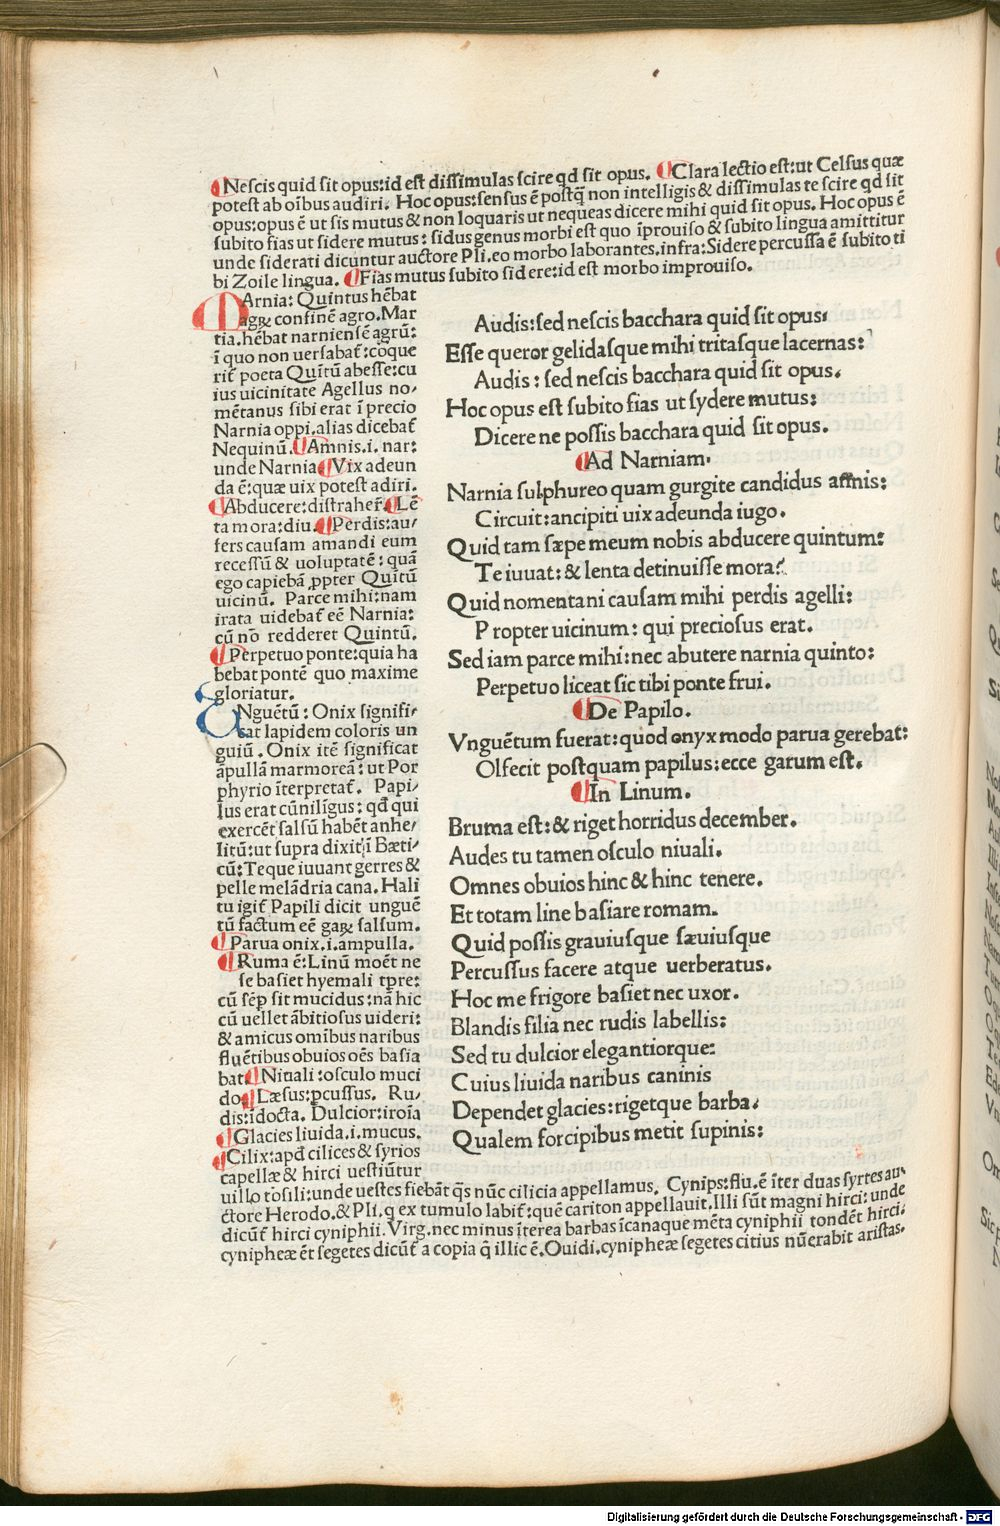 ¶Nescis quid sit opus:id est dissimulas scire qd sit opus. ¶Clara lectio est:ut Celsus quæ
potest ab oibus audiri. Hoc opus:sensus ē postq̃ non intelligis & dissimulas te scire qd sit
opus:opus ē ut sis mutus & non loquaris ut nequeas dicere mihi quid sit opus. Hoc opus ē
subito fias ut sidere mutus: sidus genus morbi est quo īprouiso & subito lingua amittitur
unde siderati dicuntur auctore Pli.eo morbo laborantes.infra:Sidere percussa ē subito ti
bi Zoile lingua. ¶Fias mutus subito sidere:id est morbo improuiso.
Arnia: Quintus hēbat
agꝝ confinē agro.Mar
tia.hēbat narniensē agrū:
ī quo non uersabat̄:cōque
rit̄ poeta Quītū abesse:cu
ius uicinitate Agellus no/
mētanus sibi erat ī precio
Narnia oppi.alias dicebat̄
Nequinū.¶Amnis.i. nar:
unde Narnia¶Vix adeun
da ē:quæ uix potest adiri.
¶Abducere:distraher̄.¶Lē
ta mora:diu.¶Perdis:au/
fers causam amandi eum
recessū & uoluptatē: quā
ego capiebā ꝓpter Quītū
uicinū. Parce mihi:nam
irata uidebat̄ eē Narnia:
cū nō redderet Quintū.
¶Perpetuo ponte:quia ha
bebat pontē quo maxime
gloriatur.
Nguētū: Onix signifi/
cat lapidem coloris un
guiū. Onix itē significat
āpullā marmoreā: ut Por
phyrio īterpretat̄. Papi/
lus erat cūniligus: qđ qui
exercēt salsū habēt anhe/
litū:ut supra dixit:ī Bæti/
cū:Teque iuuant gerres &
pelle melādria cana. Hali
tu igit̄ Papili dicit unguē
tū factum eē gaꝝ salsum.
¶Parua onix.i.ampulla.
¶Ruma ē:Linū moēt ne
se basiet hyemali tꝑre:
cū sēp sit mucidus:nā hic
cū uellet ābitiosus uideri:
& amicus omībus naribus
fluētibus obuios oēs basia
bat.¶Niuali:osculo muci
do.¶Læsus:ꝑcussus. Ru/
dis:īdocta. Dulcior:iroīa
¶Glacies liuida.i.mucus.
¶Cilix:apđ cilices & syrios
capellæ & hirci uestiūtur
uillo tōsili:unde uestes fiebāt q̄s nūc cilicia appellamus. Cynips:flu.ē īter duas syrtes au/
ctore Herodo.& Pli.q ex tumulo labit̄:quē cariton appellauit.Illi sūt magni hirci:unde
dicūt̄ hirci cyniphii.Virg.nec minus īterea barbas īcanaque mēta cyniphii tondēt hirci.
cynipheæ ēt segetes dicūt̄ a copia q̄ illic ē.Ouidi.cynipheæ segetes citius nūerabit aristas.
Audis:sed nescis bacchara quid sit opus:
Esse queror gelidasque mihi tritasque lacernas:
Audis: sed nescis bacchara quid sit opus.
Hoc opus est subito fias ut sydere mutus:
Dicere ne possis bacchara quid sit opus.
¶Ad Narniam.
Narnia sulphureo quam gurgite candidus amnis:
Circuit:ancipiti uix adeunda iugo.
Quid tam sæpe meum nobis abducere quintum:
Te iuuat: & lenta detinuisse mora?
Quid nomentani causam mihi perdis agelli:
Propter uicinum: qui preciosus erat.
Sed iam parce mihi:nec abutere narnia quinto:
Perpetuo liceat sic tibi ponte frui.
¶De Papilo.
Vnguētum fuerat:quod onyx modo parua gerebat:
Olfecit postquam papilus:ecce garum est.
¶In Linum.
Bruma est:& riget horridus december.
Audes tu tamen osculo niuali.
Omnes obuios hinc & hinc tenere.
Et totam line basiare romam.
Quid possis grauiusque sæuiusque
Percussus facere atque uerberatus.
Hoc me frigore basiet nec uxor.
Blandis filia nec rudis labellis:
Sed tu dulcior elegantiorque:
Cuius liuida naribus caninis
Dependet glacies:rigetque barba.
Qualem forcipibus metit supinis:
Digitalisierung gefördert durch die Deutsche Forschungsgemeinschaft - DFG